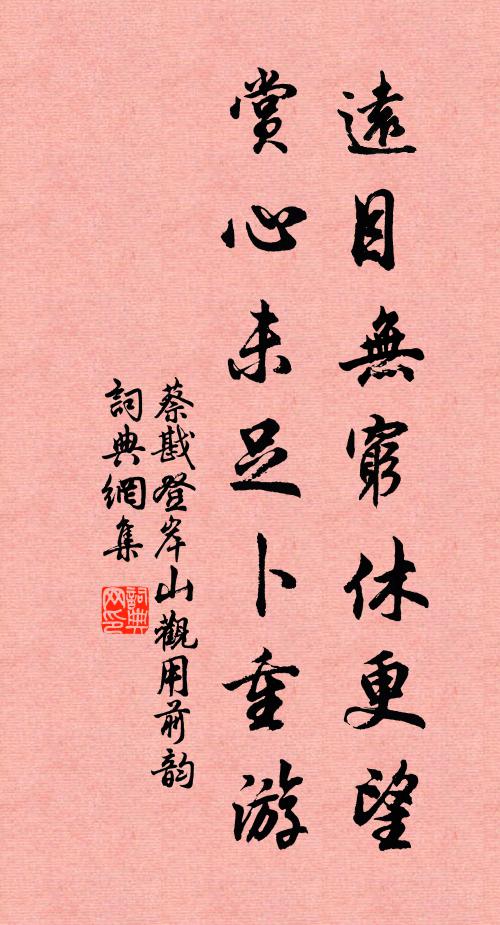 遠目無窮休更望
賞心未足卜重游
蔡戡登岸山觀用前韵
詞典網集
詞典网印